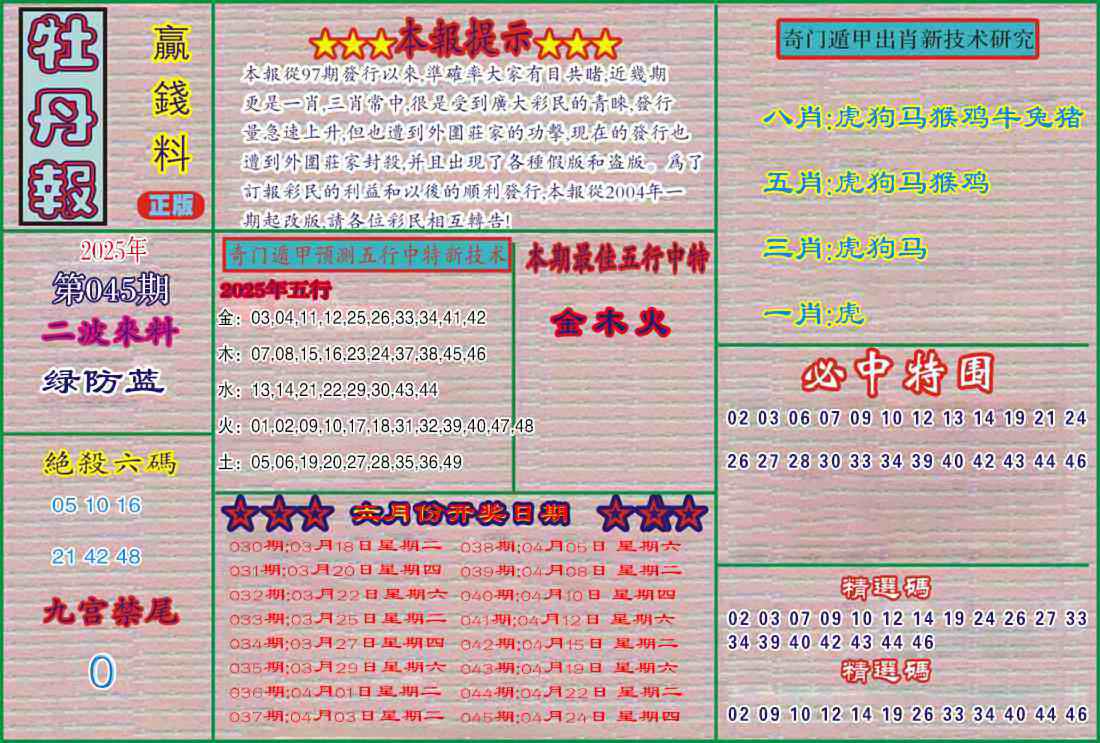 牡丹報
贏錢料
正版
2025年
第045期
二波來料
绿防蓝
絕殺六碼
05 10 16
21 42 48
九宫禁尾
0
★★★本報提示★★★
本報從97期發行以來,準確率大家有目共睹,近幾期
更是一肖,三肖常中,很是受到廣大彩民的青睞,發行
量急速上升,但也遭到外圍莊家的功擊,現在的發行也
遭到外圍莊家封殺,并且出現了各種假版和盗版。爲了
訂報彩民的利益和以後的順利發行,本報從2004年一
期起改版,請各位彩民相互轉告!
奇门遁甲预测五行中特新技术
2025年五行
金：03,04,11,12,25,26,33,34,41,42
木：07,08,15,16,23,24,37,38,45,46
水：13,14,21,22,29,30,43,44
火：01,02,09,10,17,18,31,32,39,40,47,48
土：05,06,19,20,27,28,35,36,49
本期最佳五行中特
金木火
★★★ 六月份开奖日期 ★★★
030期;03月18日星期二 038期;04月05日 星期六
031期;03月20日星期四 039期;04月08日 星期二
032期;03月22日星期六 040期;04月10日 星期四
033期;03月25日星期二 041期;04月12日 星期六
034期;03月27日星期四 042期;04月15日 星期二
035期;03月29日星期六 043期;04月19日 星期六
036期;04月01日星期二 044期;04月22日 星期二
037期;04月03日星期二 045期;04月24日 星期四
奇门遁甲出肖新技术研究
八肖:虎狗马猴鸡牛兔猪
五肖:虎狗马猴鸡
三肖:虎狗马
一肖:虎
必中特围
02 03 06 07 09 10 12 13 14 19 21 24
26 27 28 30 33 34 39 40 42 43 44 46
精選碼
02 03 07 09 10 12 14 19 24 26 27 33
34 39 40 42 43 44 46
精選碼
02 09 10 12 14 19 26 33 34 40 44 46